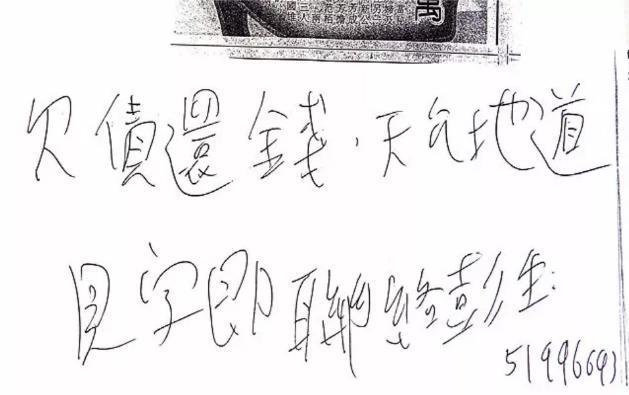 萬
欠債還錢，天公地道
見字即聯絡彭生：
51996693